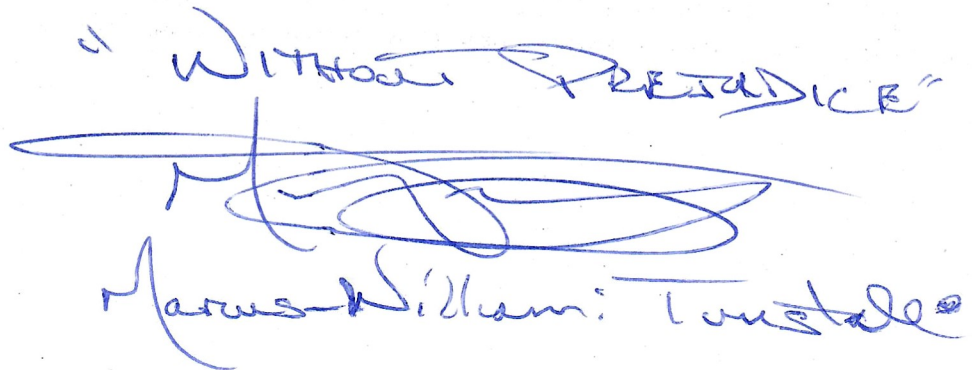 "WITHOUT PREJUDICE"
Marcus-William: Tunstall.